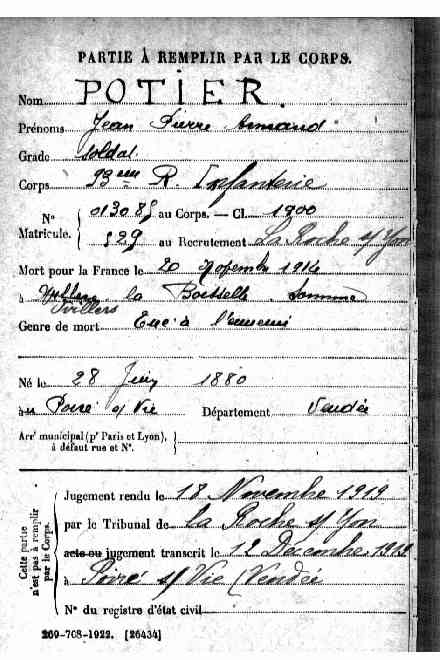 PARTIE À REMPLIR PAR LE CORPS.
Nom POTIER.
Prénoms Jean Pierre Armand
Grade soldat.
Corps 93ème R. Infanterie
N° Matricule. { 013085 au Corps. — Cl. 1900
929 au Recrutement La Roche s/ Yon
Mort pour la France le 20 novembre 1914
à la Boisselle Somme
Ovillers
Genre de mort Tué à l'ennemi
Né le 28 Juin 1880
à au Poiré s/ Vie Département Vendée
Arrt municipal (pr Paris et Lyon), à défaut rue et N°. }
Cette partie n'est pas à remplir par le Corps.
Jugement rendu le 18 Novembre 1919
par le Tribunal de La Roche s/ Yon
acte ou jugement transcrit le 12 Décembre 1919
à Poiré s/ Vie (Vendée
N° du registre d'état civil
269-708-1922. [26434]